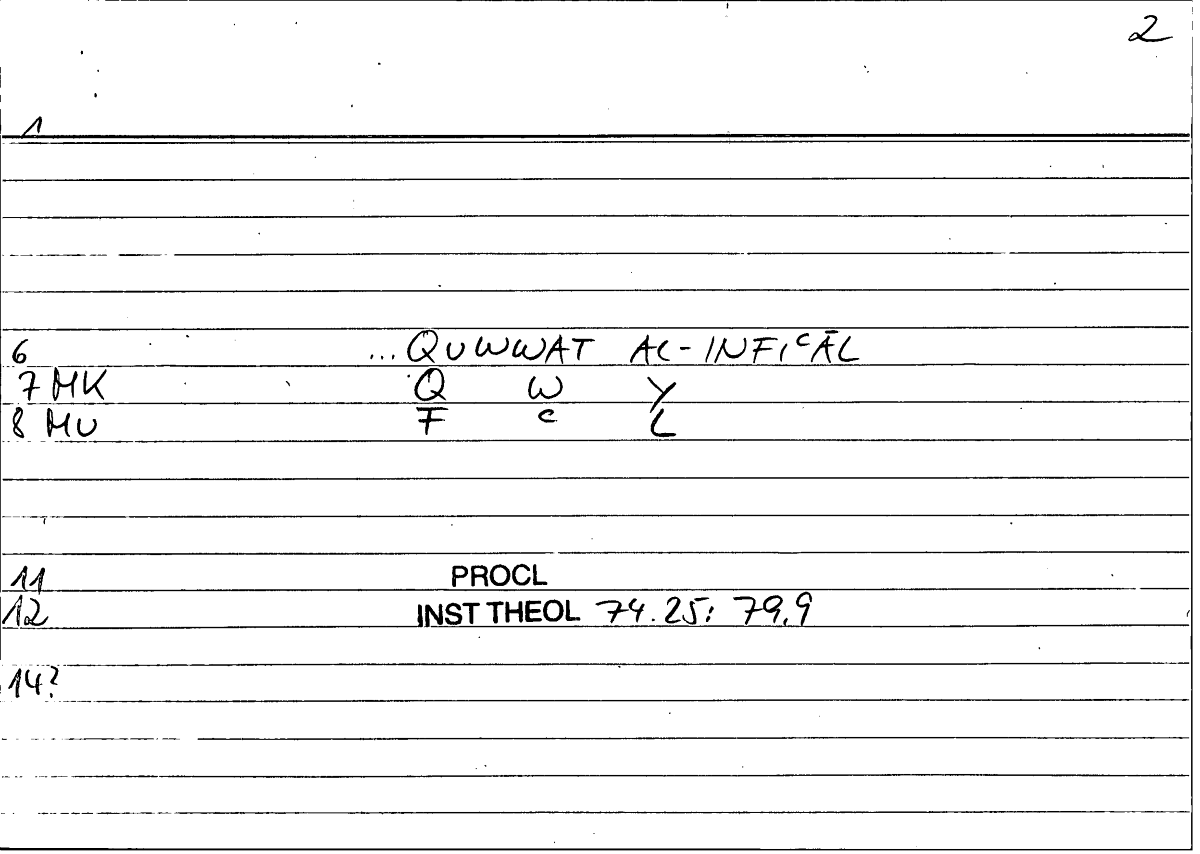 2
1
6 ... QUWWAT AL-INFIᶜĀL
7 MK Q W Y
8 MU F ᶜ L
11 PROCL
12 INST THEOL 74.25: 79.9
14?